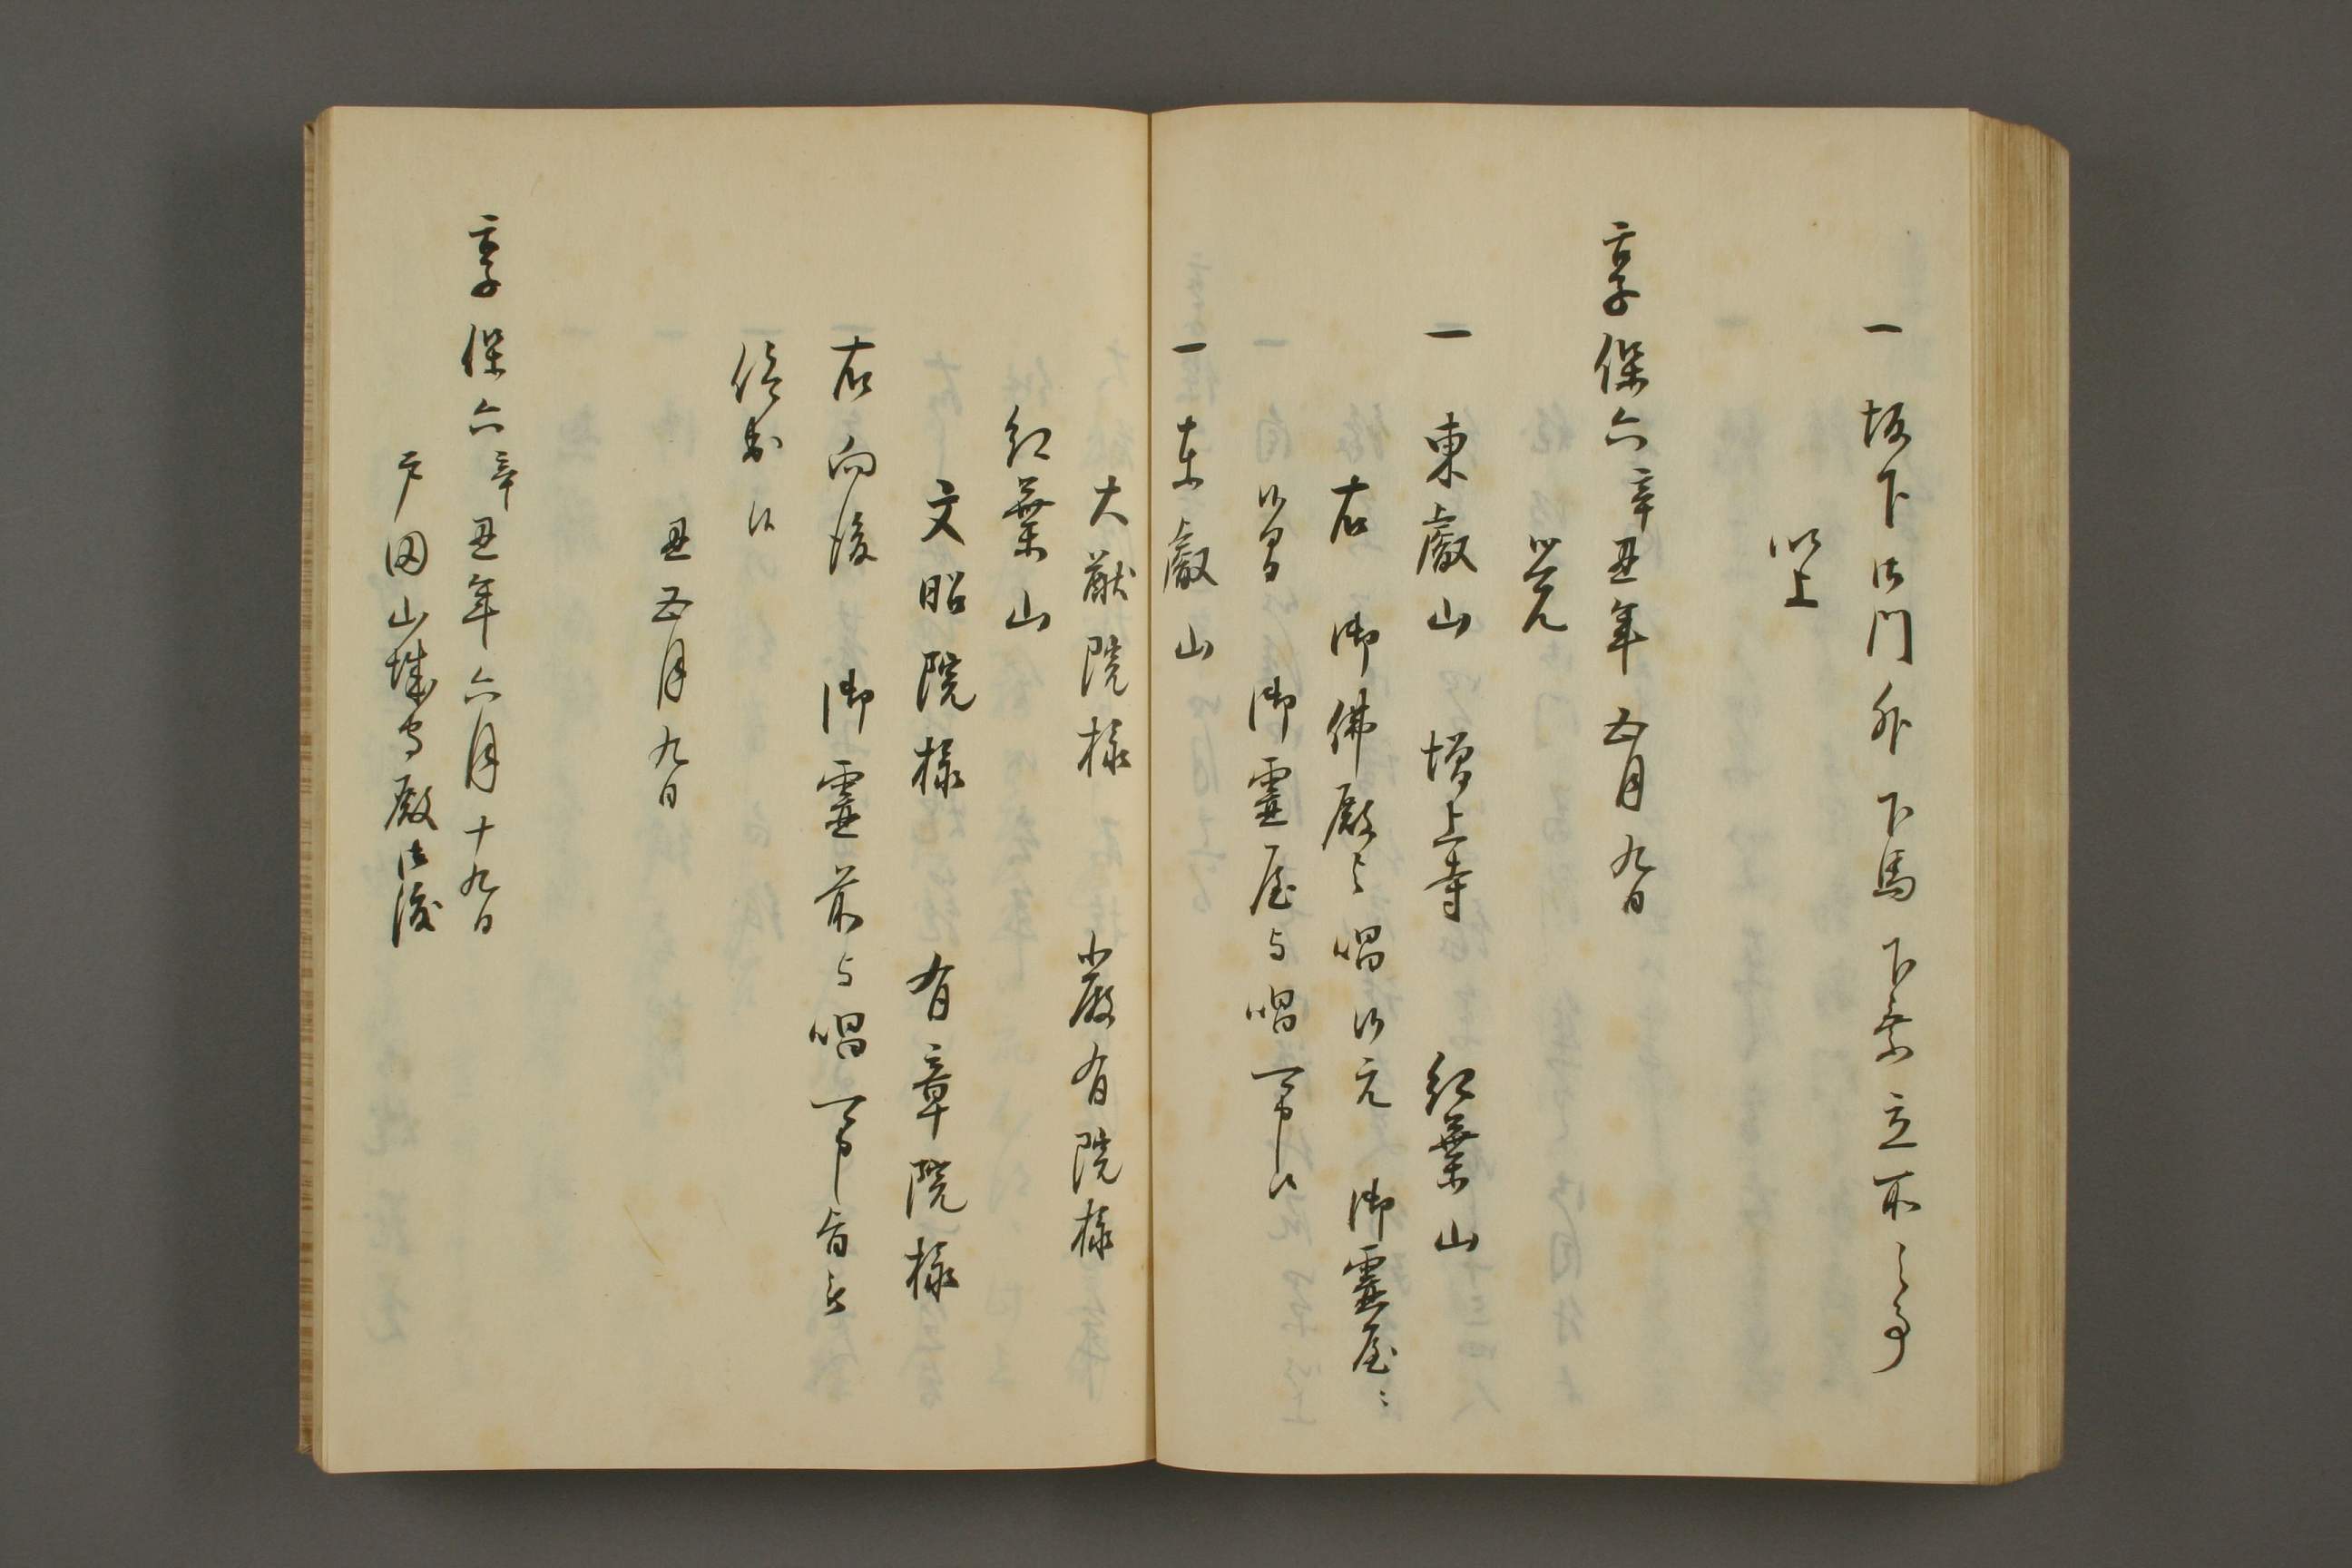 一 坂下御門外下馬下乗立所之事
以上
享保六辛丑年五月九日
覚
一 東叡山 増上寺 紅葉山
右 御佛殿与唱候元 御霊屋与
候間 御霊屋与唱可申候
一 東叡山
大猷院様 厳有院様
紅葉山
文昭院様 有章院様
右向後 御霊前与唱可申旨被
仰出候
丑五月九日
享保六辛丑年六月十九日
戸田山城守殿御渡